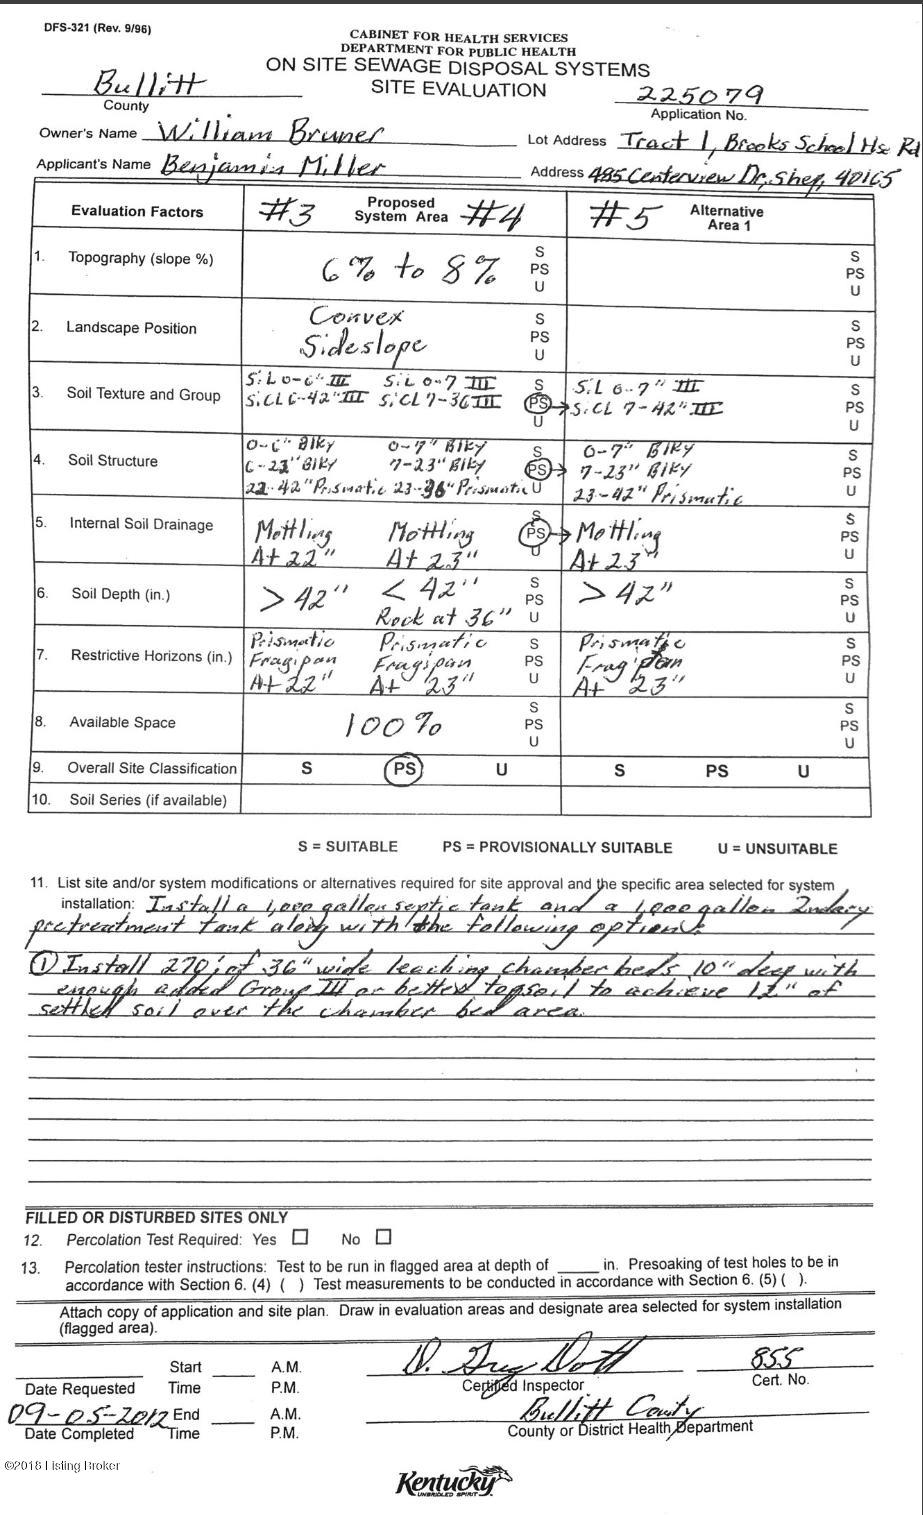 DFS-321 (Rev. 9/96)
CABINET FOR HEALTH SERVICES
DEPARTMENT FOR PUBLIC HEALTH
ON SITE SEWAGE DISPOSAL SYSTEMS
SITE EVALUATION
Bullitt
County
225079
Application No.
Owner's Name William Bruner
Lot Address Tract 1, Brooks School Hse Rd
Applicant's Name Benjamin Miller
Address 485 Centerview Dr, Shep, 40165
Evaluation Factors #3 Proposed System Area #4 #5 Alternative Area 1
1. Topography (slope %) 6% to 8% S PS U S PS U
2. Landscape Position Convex Sideslope S PS U S PS U
3. Soil Texture and Group
SiL 0-6" III SiL 0-7 III S SiL 0-7" III S
SiCL 6-42" III SiCL 7-36 III PS SiCL 7-42" III PS
U U
4. Soil Structure
0-6" Blky 0-7" Blky S 0-7" Blky S
6-22" Blky 7-23" Blky PS 7-23" Blky PS
22-42" Prismatic 23-36" Prismatic U 23-42" Prismatic U
5. Internal Soil Drainage
Mottling Mottling S PS Mottling S PS
At 22" At 23" U At 23" U
6. Soil Depth (in.)
>42" <42" S PS >42" S PS
Rock at 36" U U
7. Restrictive Horizons (in.)
Prismatic Prismatic S Prismatic S
Fragipan Fragipan PS Fragipan PS
At 22" At 23" U At 23" U
8. Available Space 100% S PS U S PS U
9. Overall Site Classification S PS U S PS U
10. Soil Series (if available)
S = SUITABLE PS = PROVISIONALLY SUITABLE U = UNSUITABLE
11. List site and/or system modifications or alternatives required for site approval and the specific area selected for system
installation: Install a 1,000 gallon septic tank and a 1,000 gallon 2ndary
pretreatment tank along with the following option:
① Install 270' of 36" wide leaching chamber beds 10" deep with
enough added Group III or better topsoil to achieve 12" of
settled soil over the chamber bed area.
FILLED OR DISTURBED SITES ONLY
12. Percolation Test Required: Yes ☐ No ☐
13. Percolation tester instructions: Test to be run in flagged area at depth of _____ in. Presoaking of test holes to be in
accordance with Section 6. (4) ( ) Test measurements to be conducted in accordance with Section 6. (5) ( ).
Attach copy of application and site plan. Draw in evaluation areas and designate area selected for system installation
(flagged area).
Start A.M. D. Greg Dott 855
Date Requested Time P.M. Certified Inspector Cert. No.
09-05-2012 End A.M. Bullitt County
Date Completed Time P.M. County or District Health Department
©2018 Listing Broker
Kentucky
UNBRIDLED SPIRIT